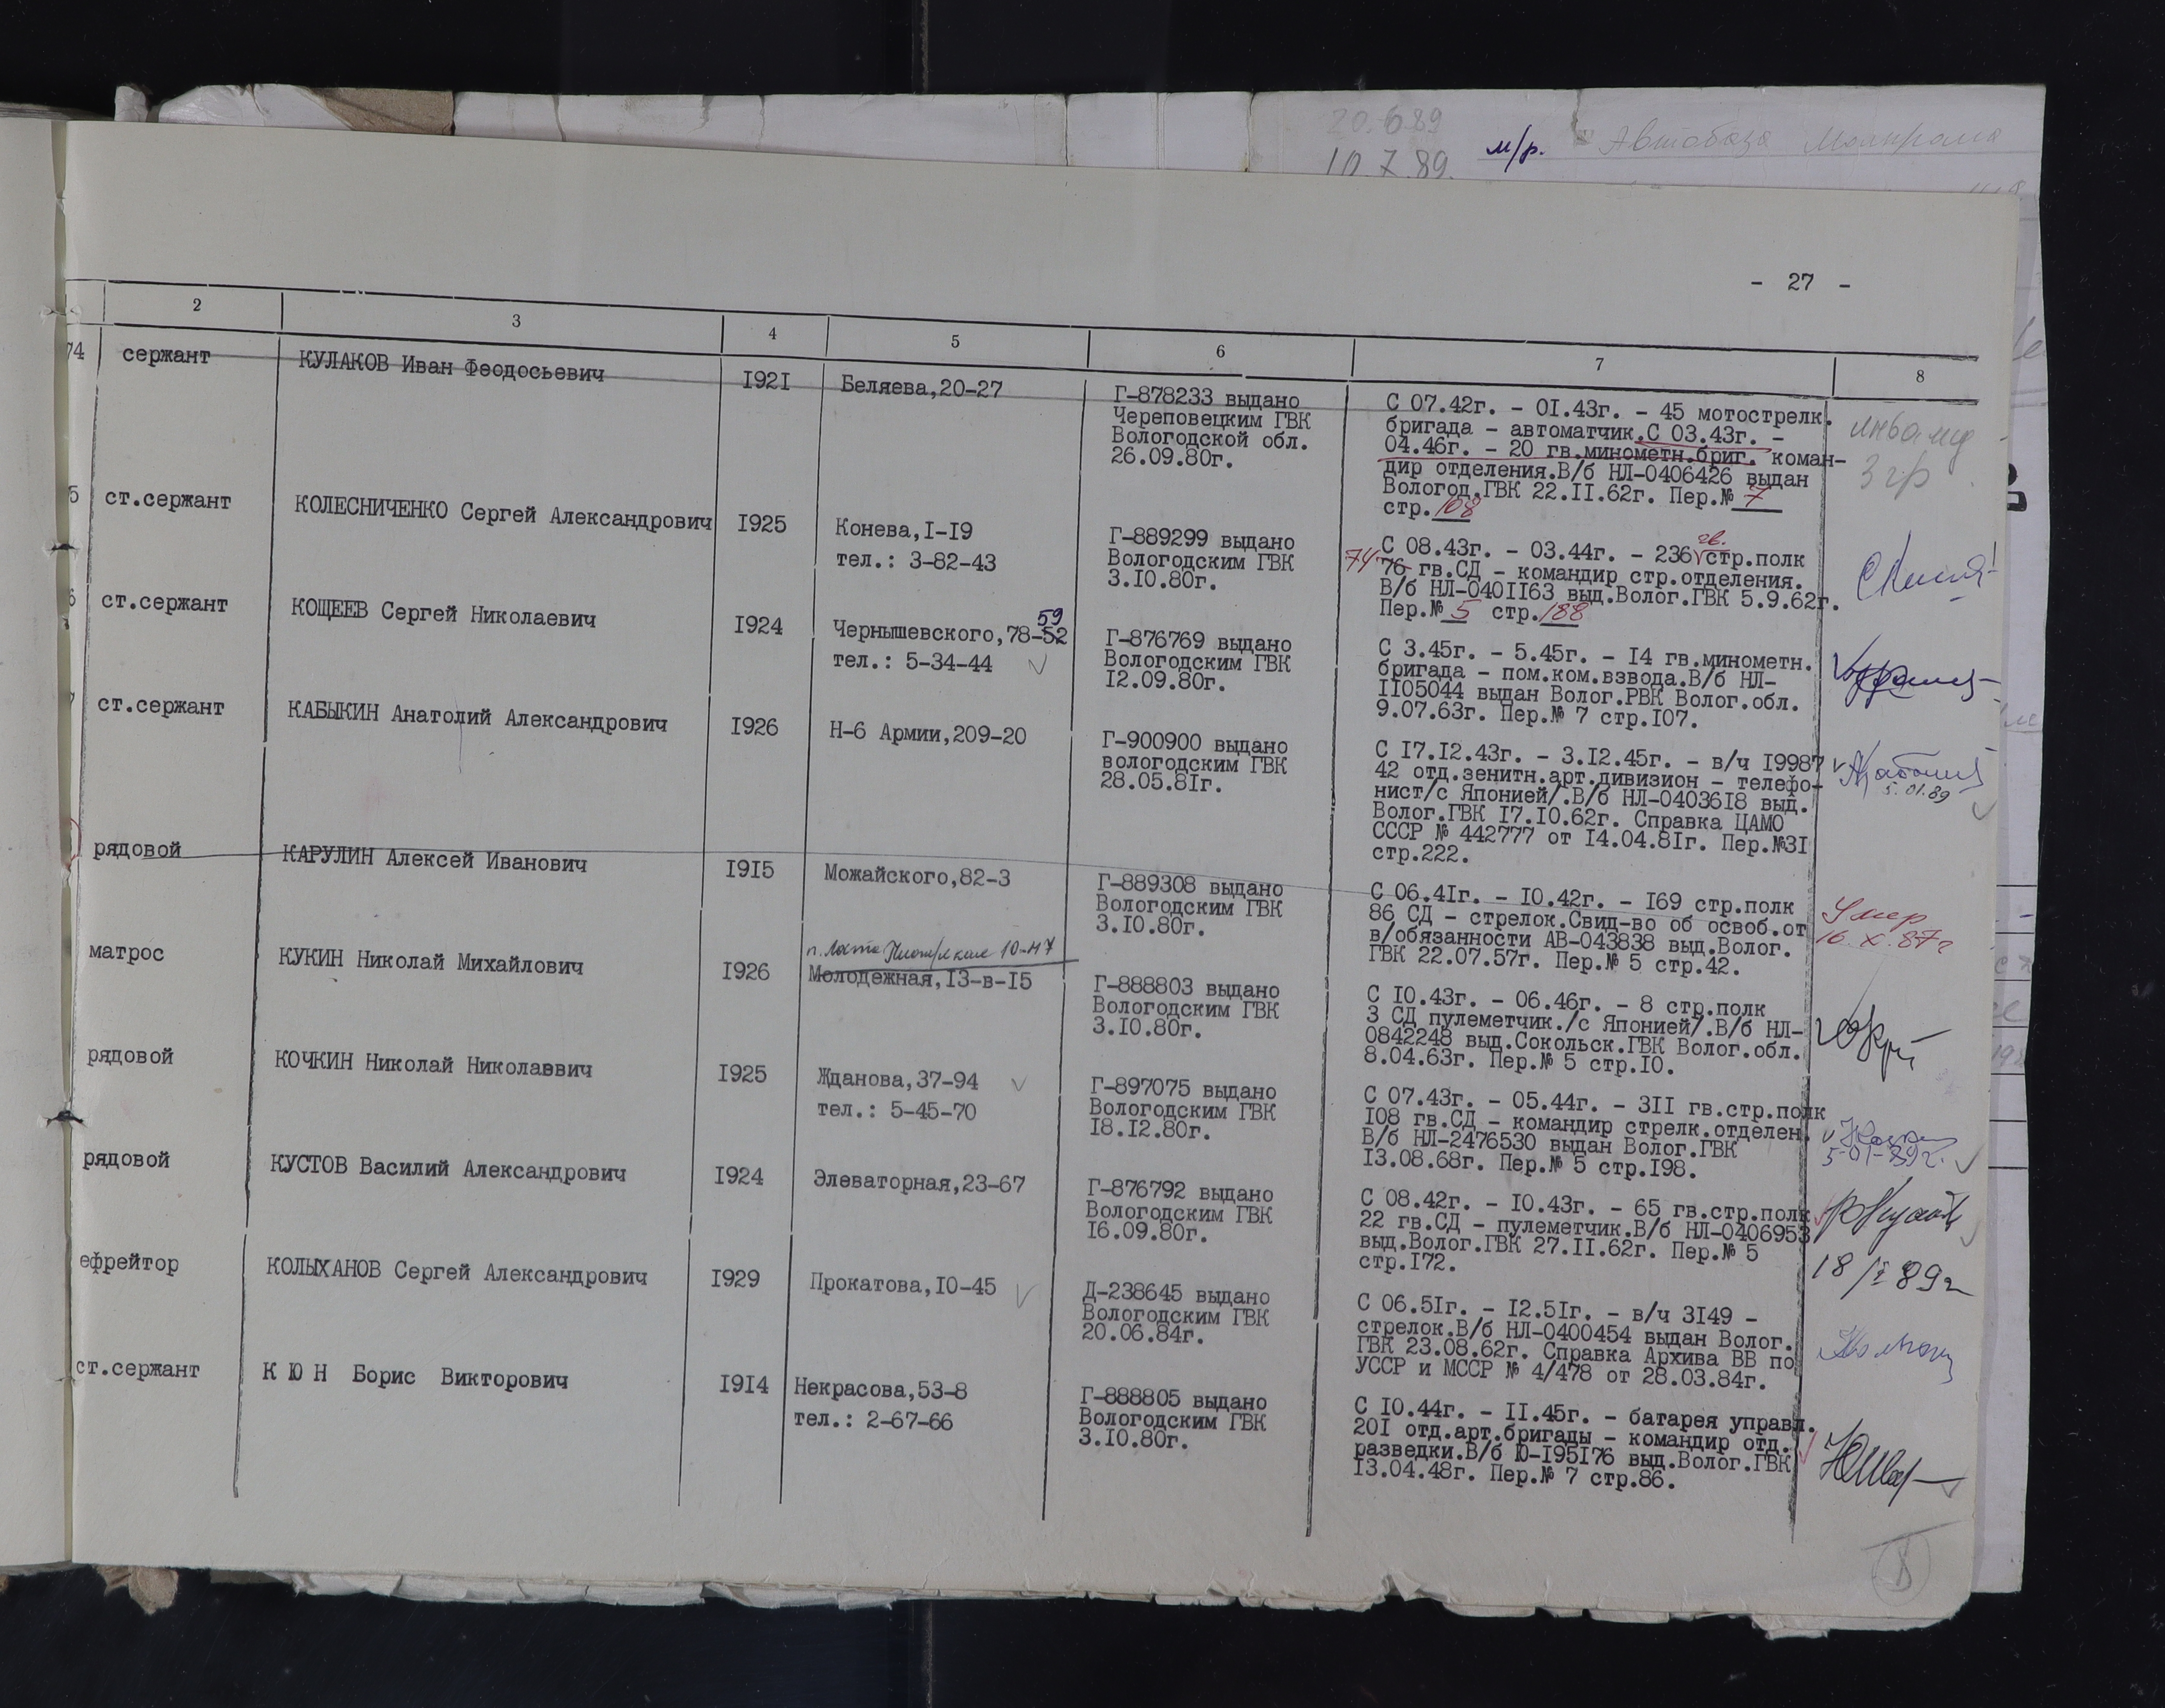 20.6.89
10.7.89. м/р. Автобаза
- 27 -
2 3 4 5 6 7 8
74 сержант КУЛАКОВ Иван Феодосьевич I92I Беляева,20-27
Г-878233 выдано
Череповецким ГВК
Вологодской обл.
26.09.80г.
С 07.42г. - 0I.43г. - 45 мотострелк.
бригада - автоматчик.С 03.43г. -
04.46г. - 20 гв.минометн.бриг. коман-
дир отделения.В/б НЛ-0406426 выдан
Вологод.ГВК 22.II.62г. Пер.№ 7
стр. 108
инвалид
3 гр
5 ст.сержант КОЛЕСНИЧЕНКО Сергей Александрович I925 Конева,I-I9
тел.: 3-82-43
Г-889299 выдано
Вологодским ГВК
3.I0.80г.
гв.
С 08.43г. - 03.44г. - 236 стр.полк
74 76 гв.СД - командир стр.отделения.
В/б НЛ-040II63 выд.Волог.ГВК 5.9.62г.
Пер.№ 5 стр. 188
6 ст.сержант КОЩЕЕВ Сергей Николаевич I924
59
Чернышевского,78-52
тел.: 5-34-44
Г-876769 выдано
Вологодским ГВК
I2.09.80г.
С 3.45г. - 5.45г. - I4 гв.минометн.
бригада - пом.ком.взвода.В/б НЛ-
II05044 выдан Волог.РВК Волог.обл.
9.07.63г. Пер.№ 7 стр.I07.
7 ст.сержант КАБЫКИН Анатолий Александрович I926 Н-6 Армии,209-20
Г-900900 выдано
вологодским ГВК
28.05.8Iг.
С I7.I2.43г. - 3.I2.45г. - в/ч I9987
42 отд.зенитн.арт.дивизион - телефо-
нист/с Японией/.В/б НЛ-04036I8 выд.
Волог.ГВК I7.I0.62г. Справка ЦАМО
СССР № 442777 от I4.04.8Iг. Пер.№3I
стр.222.
5.01.89
рядовой КАРУЛИН Алексей Иванович I9I5 Можайского,82-3
Г-889308 выдано
Вологодским ГВК
3.I0.80г.
С 06.4Iг. - I0.42г. - I69 стр.полк
86 СД - стрелок.Свид-во об освоб.от
в/обязанности АВ-043838 выд.Волог.
ГВК 22.07.57г. Пер.№ 5 стр.42.
Умер
16.X.87г
матрос КУКИН Николай Михайлович I926
10-47
Молодежная,I3-в-I5
Г-888803 выдано
Вологодским ГВК
3.I0.80г.
С I0.43г. - 06.46г. - 8 стр.полк
3 СД пулеметчик./с Японией/.В/б НЛ-
0842248 выд.Сокольск.ГВК Волог.обл.
8.04.63г. Пер.№ 5 стр.I0.
рядовой КОЧКИН Николай Николаввич I925 Жданова,37-94
тел.: 5-45-70
Г-897075 выдано
Вологодским ГВК
I8.I2.80г.
С 07.43г. - 05.44г. - 3II гв.стр.полк
I08 гв.СД - командир стрелк.отделен.
В/б НЛ-2476530 выдан Волог.ГВК
I3.08.68г. Пер.№ 5 стр.I98.
5-01-89г.
рядовой КУСТОВ Василий Александрович I924 Элеваторная,23-67
Г-876792 выдано
Вологодским ГВК
I6.09.80г.
С 08.42г. - I0.43г. - 65 гв.стр.полк
22 гв.СД - пулеметчик.В/б НЛ-0406953
выд.Волог.ГВК 27.II.62г. Пер.№ 5
стр.I72.
18/I 89г
ефрейтор КОЛЫХАНОВ Сергей Александрович I929 Прокатова,I0-45
Д-238645 выдано
Вологодским ГВК
20.06.84г.
С 06.5Iг. - I2.5Iг. - в/ч 3I49 -
стрелок.В/б НЛ-0400454 выдан Волог.
ГВК 23.08.62г. Справка Архива ВВ по
УССР и МССР № 4/478 от 28.03.84г.
ст.сержант К Ю Н Борис Викторович I9I4 Некрасова,53-8
тел.: 2-67-66
Г-888805 выдано
Вологодским ГВК
3.I0.80г.
С I0.44г. - II.45г. - батарея управл.
20I отд.арт.бригады - командир отд.
разведки.В/б Ю-I95I76 выд.Волог.ГВК
I3.04.48г. Пер.№ 7 стр.86.